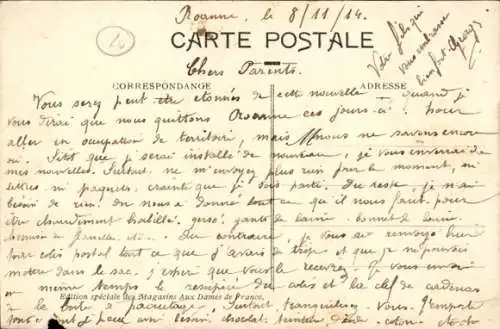 Roanne, le 8/11/14.
CARTE POSTALE
Votre fils qui
vous embrasse
bien fort Georges
Chers Parents.
CORRESPONDANCE
ADRESSE
Vous serez peut-être étonnés de cette nouvelle quand je
vous dirai que nous quittons Roanne ces jours-ci pour
aller en occupation de territoire, mais nous ne savons encore
où. Sitôt que je serai installé de nouveau, je vous enverrai de
mes nouvelles. Surtout ne m'envoyez plus rien pour le moment, ni
lettres ni paquets, crainte que je sois parti. Du reste, je n'ai
besoin de rien. On nous a donné tout ce qu'il nous faut pour
être chaudement habillé. gants de laine, bonnet de laine,
chemise de flanelle, etc. Au contraire, je vous ai renvoyé hier
par colis postal tout ce que j'avais de trop et que je ne pouvais
mettre dans le sac. J'espère que vous le recevrez. Je vous envoie
en même temps le récépissé du colis et la clef de cadenas
Edition spéciale des Magasins Aux Dames de France.
le tout à Surtout tranquillisez vous. J'emporte
tout dont je peux avoir besoin chocolat, teinture d'iode